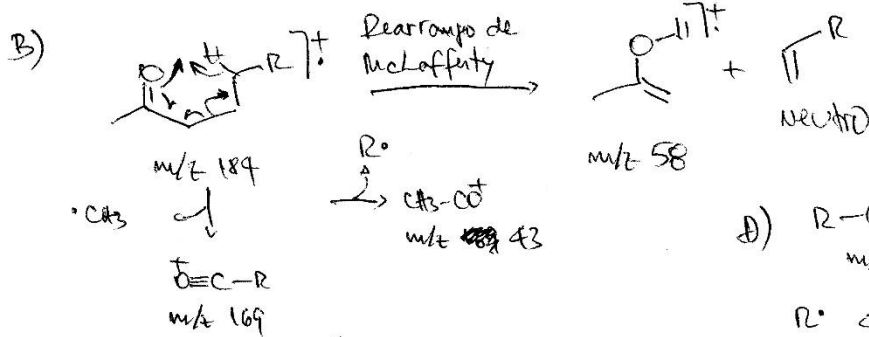 B)
O H R ]+•
Rearranjo de
McLafferty
O-H ]+•
+
R
Neutro
m/z 184
m/z 58
•CH3
R•
CH3-CO+
m/z 43
+O≡C-R
m/z 169
D) R-
m/
R•